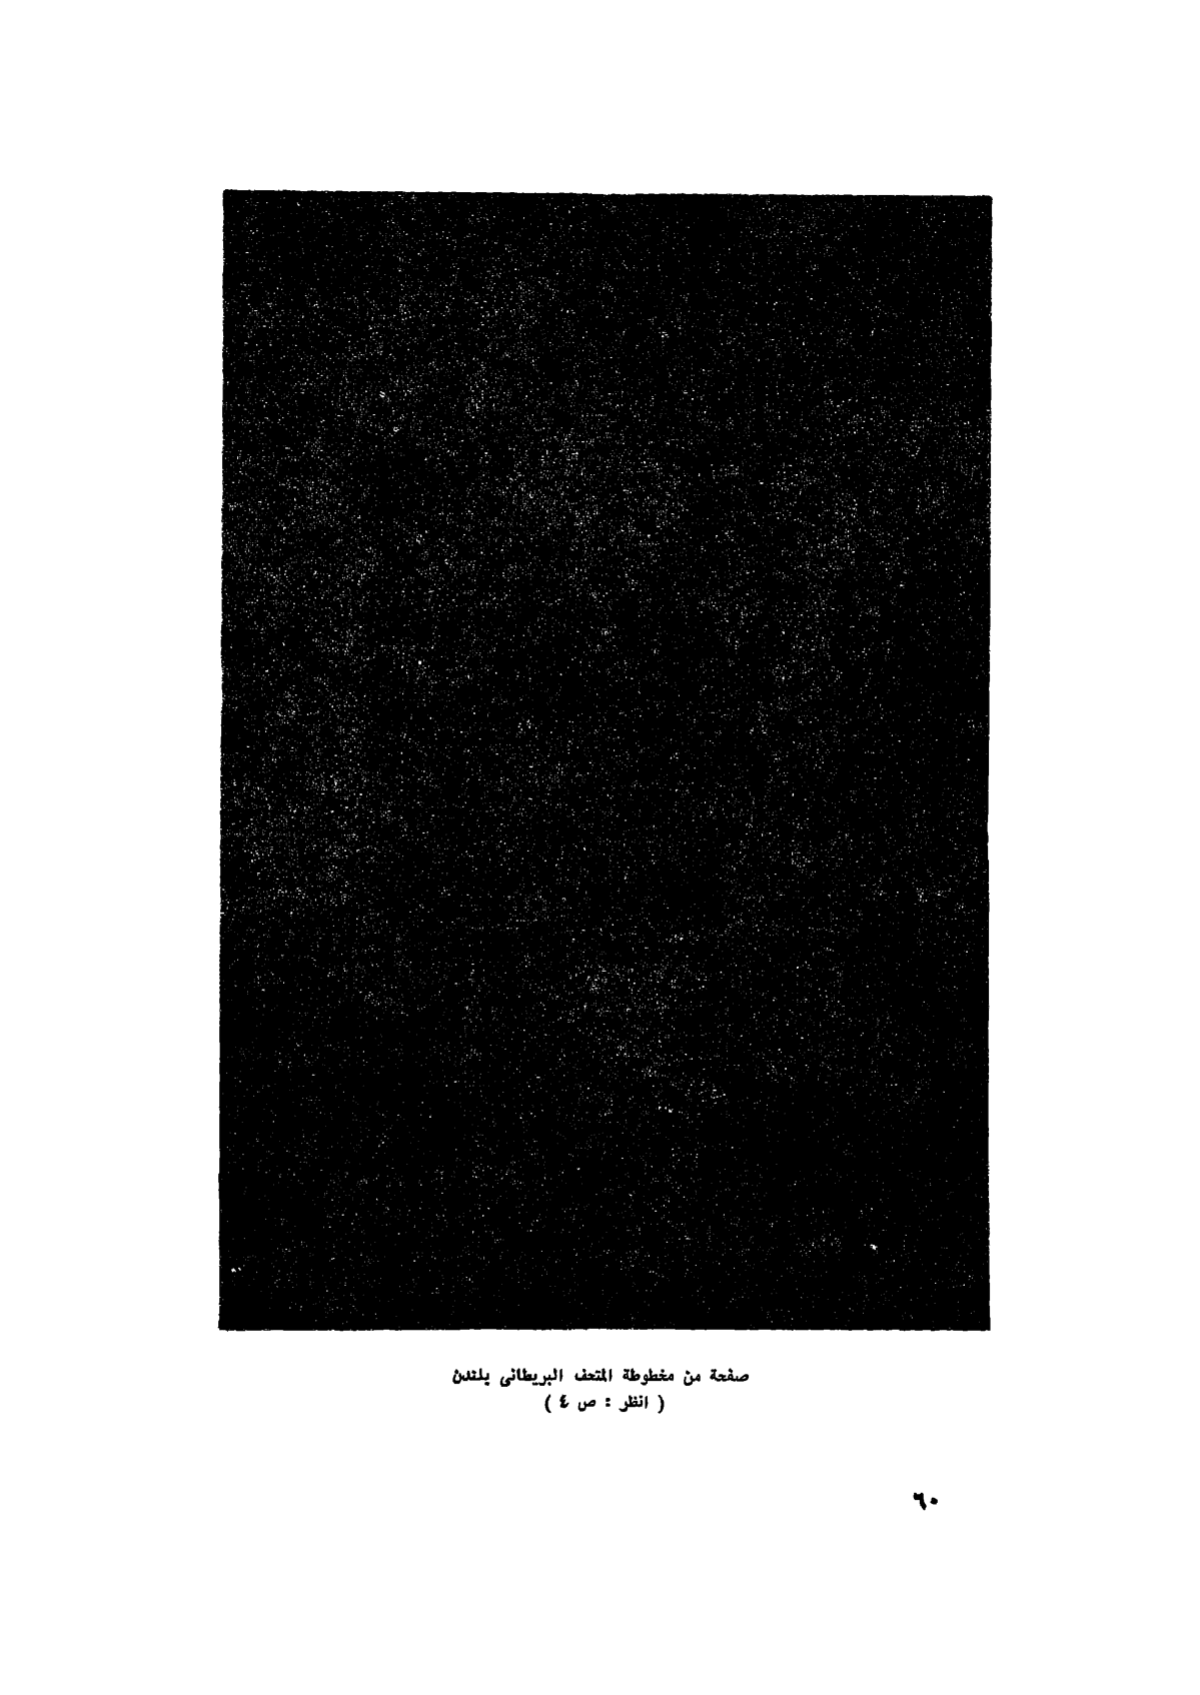 صفحة من مخطوطة المتحف البريطانى بلندن
( انظر : ص ٤ )
٦٠